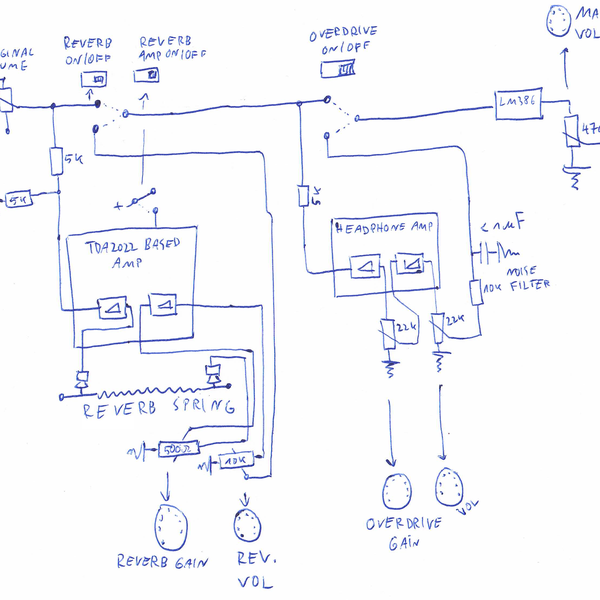 MA
VOL
OVERDRIVE
ON/OFF
REVERB
ON/OFF
REVERB
AMP ON/OFF
GINAL
UME
LM386
47
5K
5K
5K
+
TDA2022 BASED
AMP
HEADPHONE AMP
<1µF
NOISE
FILTER
10K
22K
22K
REVERB SPRING
500Ω
10K
REVERB GAIN
REV.
VOL
OVERDRIVE
GAIN
VOL